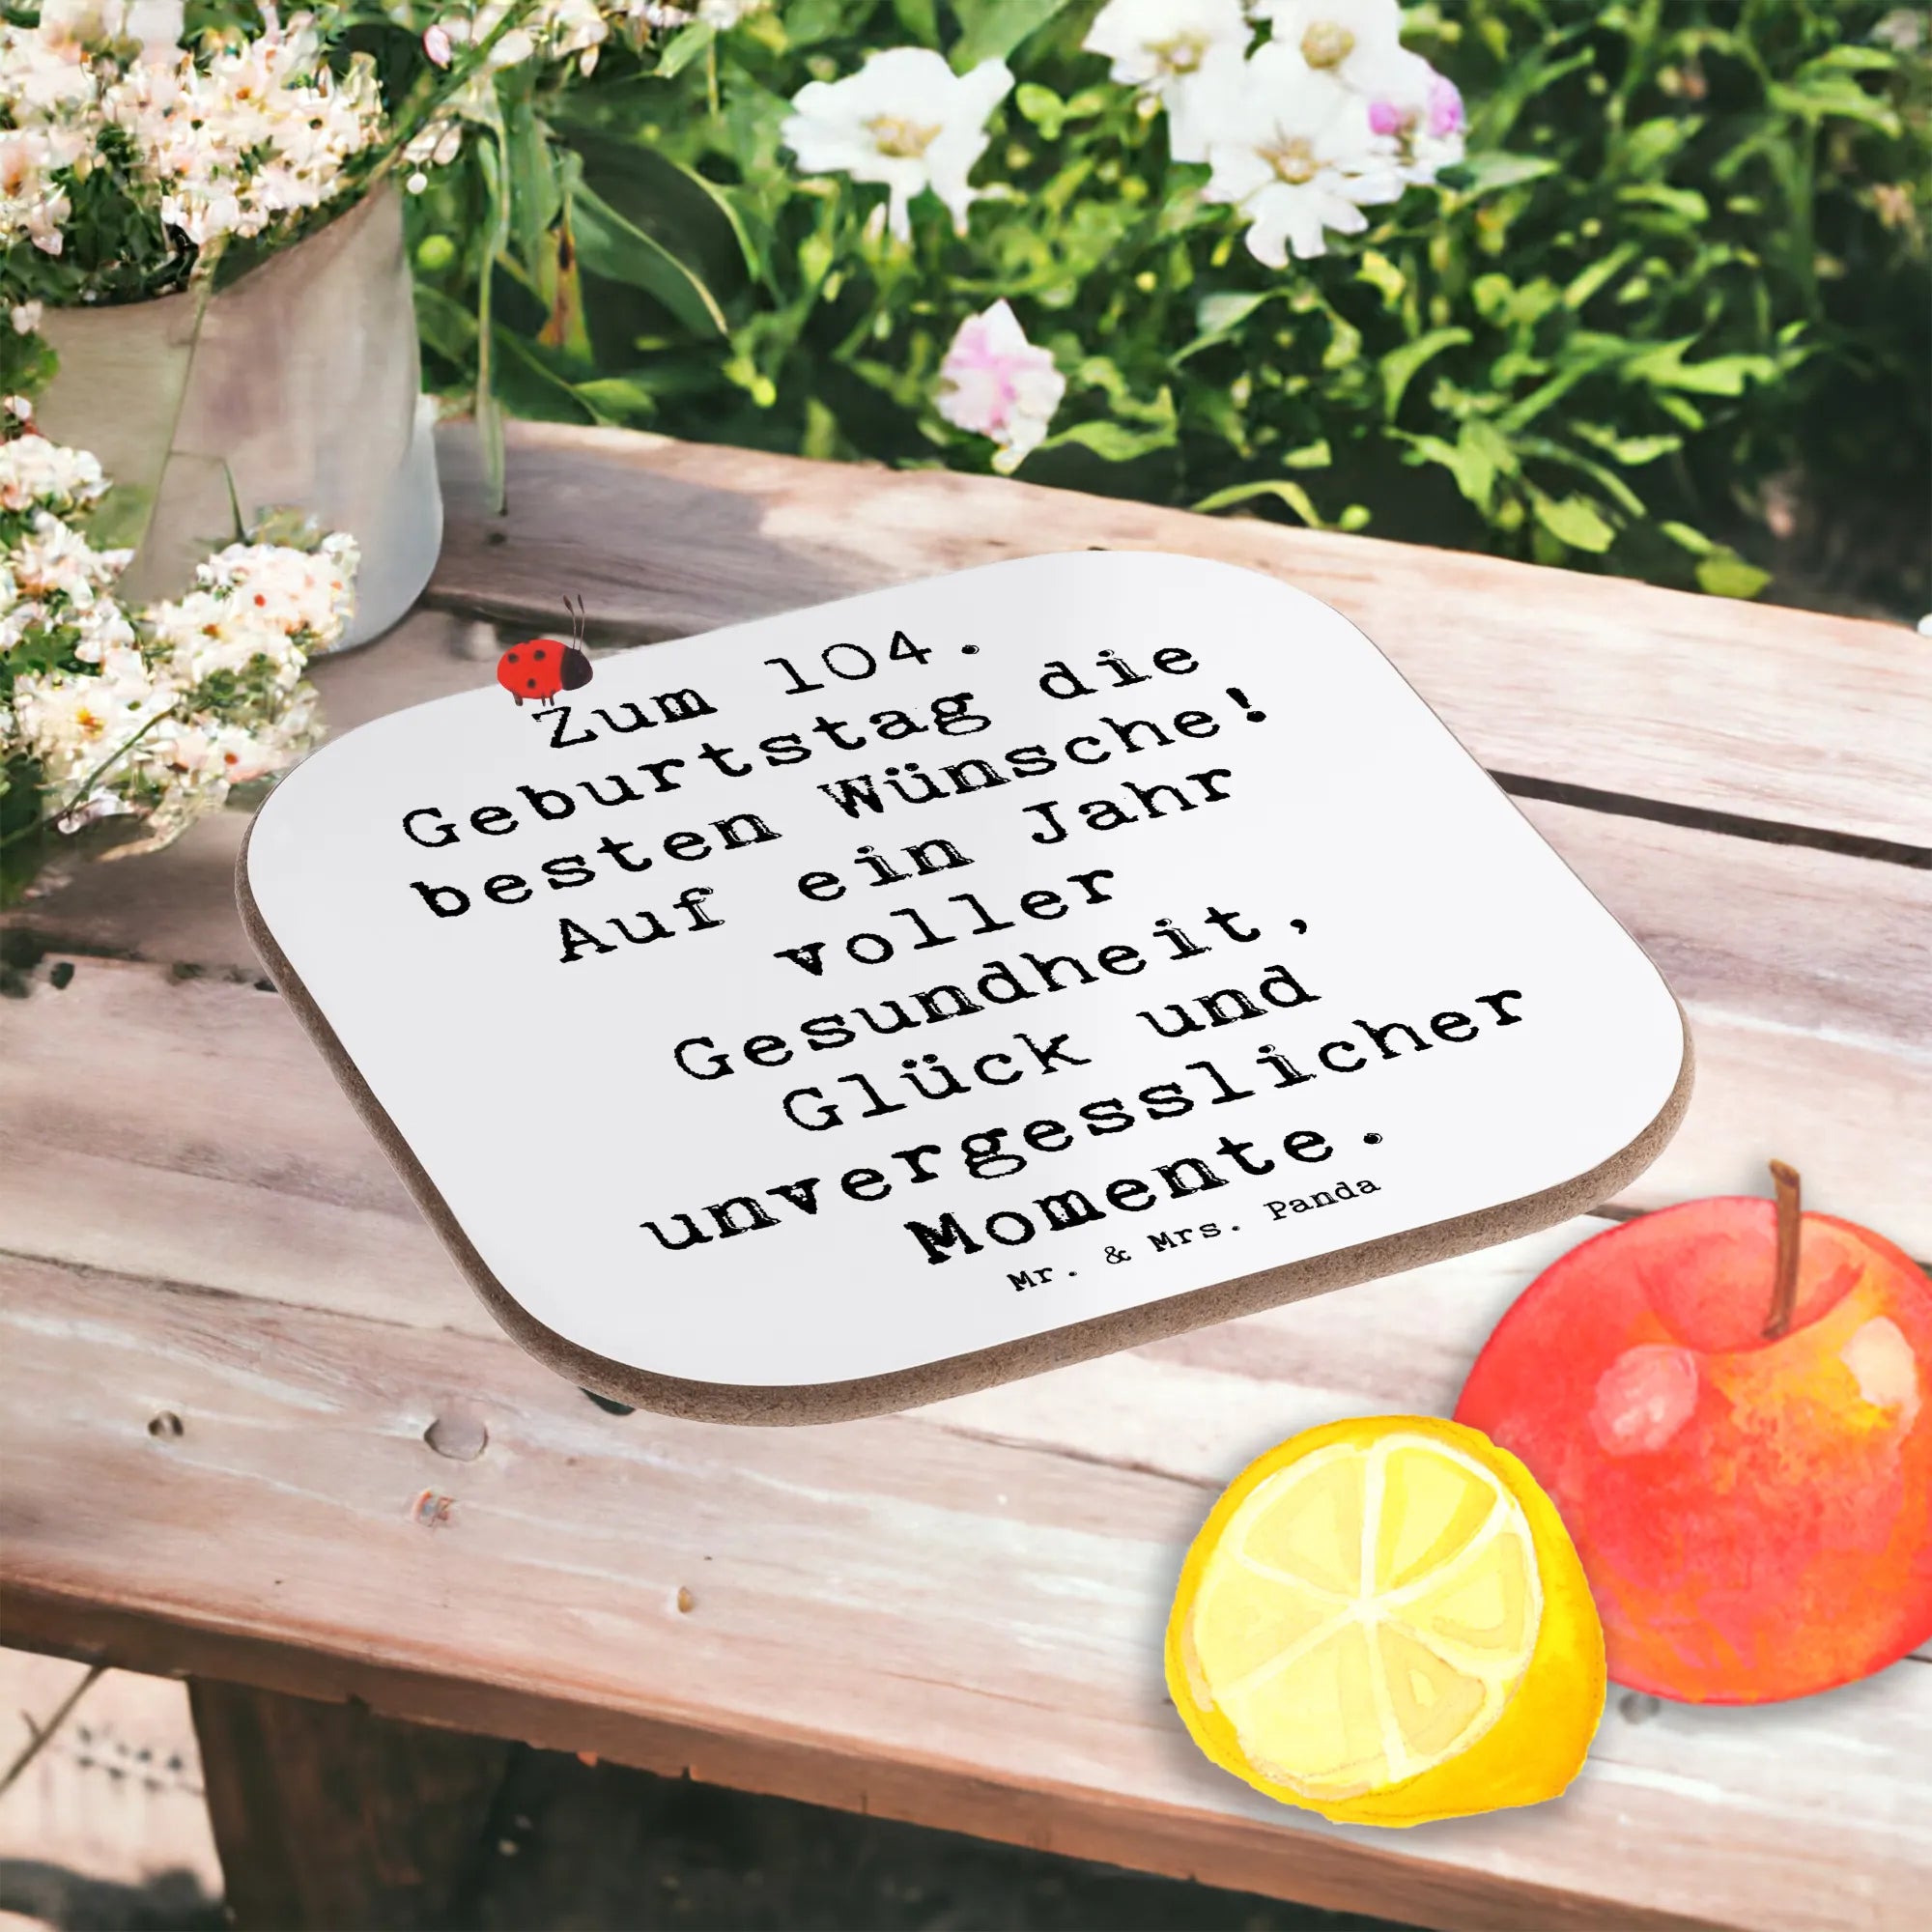 Zum 104.
Geburtstag die
besten Wünsche!
Auf ein Jahr
voller
Gesundheit,
Glück und
unvergesslicher
Momente.
Mr. & Mrs. Panda